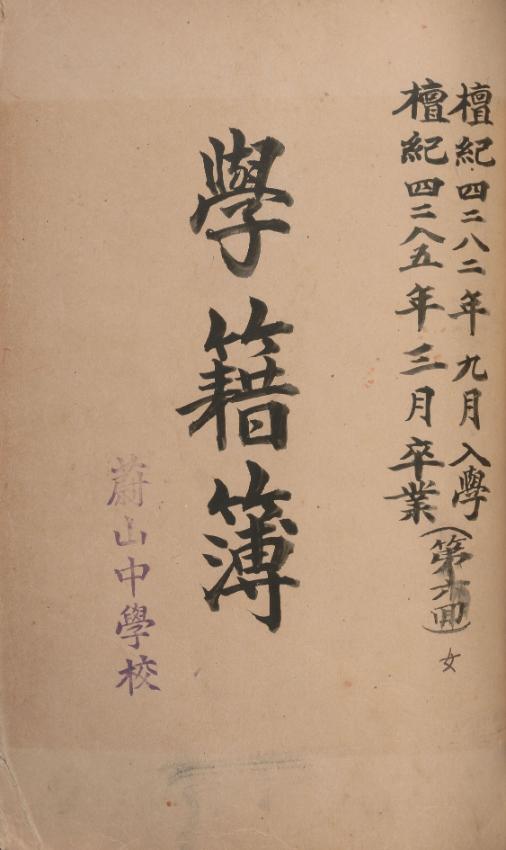 檀紀四二八二年九月入學
檀紀四二八五年三月卒業(第六回)
女
學籍簿
蔚山中學校